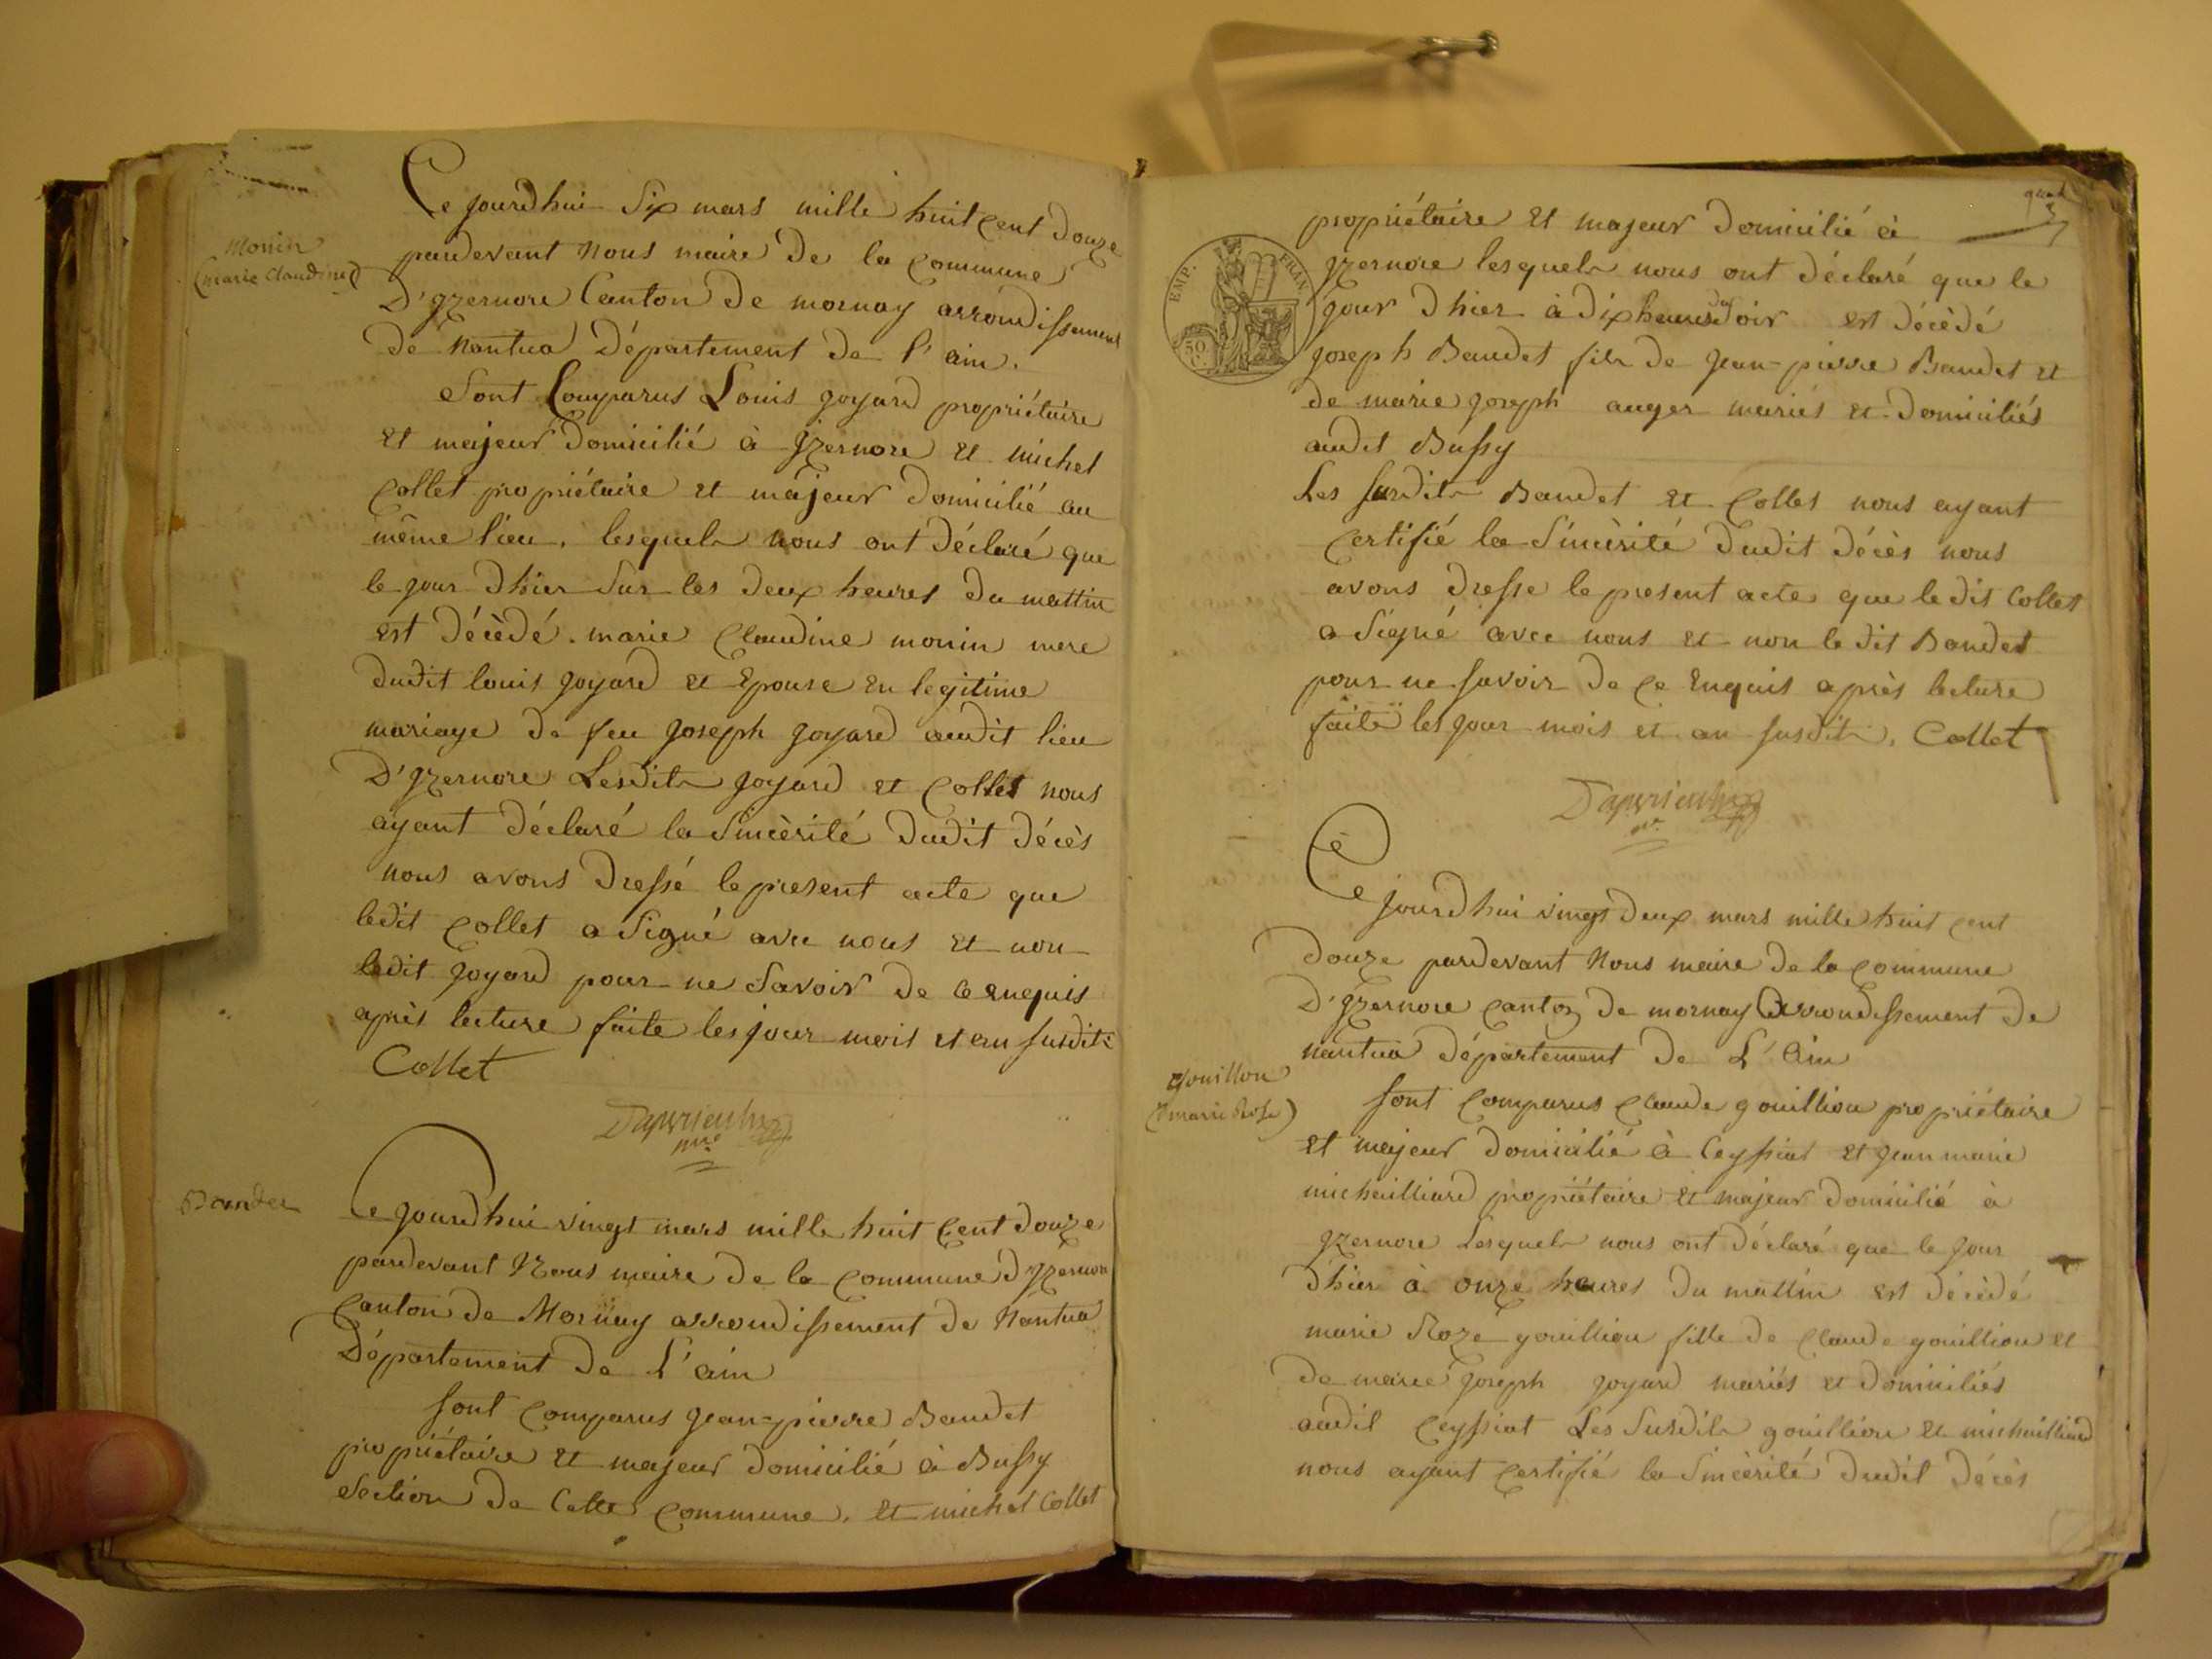 Monin
(marie Claudine)
Ce jourdhui Six mars mille huit cent douze
pardevant nous maire De la Commune
D'yzernore Canton De mornay arrondissement
De Nantua Département De l'ain.
Sont Comparus Louis goyard propriétaire
et majeur Domicilié à yzernore et michel
Collet propriétaire et majeur Domicilié au
même lieu. lesquels nous ont Déclaré que
le jour Dhier Sur les Deux heures Du mattin
est Décèdé. marie Claudine monin mere
Dudit louis goyard et Epouse en legitime
mariage De feu joseph goyard audit lieu
D'yzernore Lesdits goyard et Collet nous
ayant Déclaré la Sincèrité Dudit Décès
nous avons Dressé le present acte que
ledit Collet a Signé avec nous et non
ledit goyard pour ne Savoir De ce enquis
après lecture faite les jour mois et an susdits
Collet
mre
Baudet
Ce jourdhui vingt mars mille huit Cent Douze
pardevant Nous maire De la Commune D'yzernore
Canton De Mornay arrondissement De Nantua
Département De L'ain
Sont Comparus jean=pierre Baudet
propriétaire et majeur Domicilié à Bussy
Section De Cette Commune. et michel Collet
propriétaire et majeur Domicilié à
yzernore lesquels nous ont Déclaré que le
EMP. FRAN.
50 C.
jour Dhier à Dix heures du Soir est Décèdé
joseph Baudet fils De jean=pierre Baudet et
De marie joseph auger mariés et Domiciliés
audit Bussy
Les susdits Baudet et Collet nous ayant
Certifié la Sincèrité Dudit Décès nous
avons Dresse le present acte que ledit Collet
a Signé avec nous et non ledit Baudet
pour ne savoir De Ce Enquis après lecture
faite les jour mois et an susdits. Collet
mre
Ce jourdhui vingt Deux mars mille huit cent
Douze pardevant Nous maire De la Commune
D'yzernore Canton De mornay Arrondissement De
nantua Département De L'Ain
gouillon
(marie Rose)
Sont Comparus Claude gouillion propriétaire
et majeur Domicilié à Ceyssiat et jean marie
michailliard propriétaire et majeur Domicilié à
yzernore Lesquels nous ont Déclaré que le jour
D'hier à onze heures Du mattin est Décèdé
marie Roze gouillion fille De Claude gouillion et
De marie joseph goyard mariés et Domiciliés
audit Ceyssiat Les Susdits gouillion et michailliard
nous ayant Certifié la Sincèrité Dudit Décès